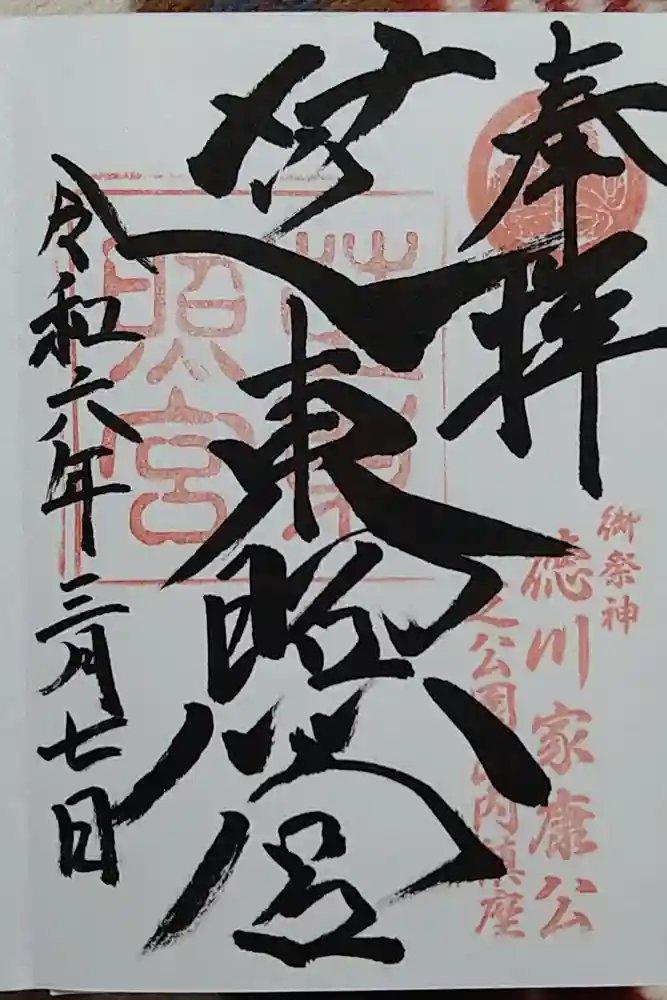 奉拝
御祭神
徳川家康公
芝公園内鎮座
芝東照宮
芝東
照宮
令和六年三月七日